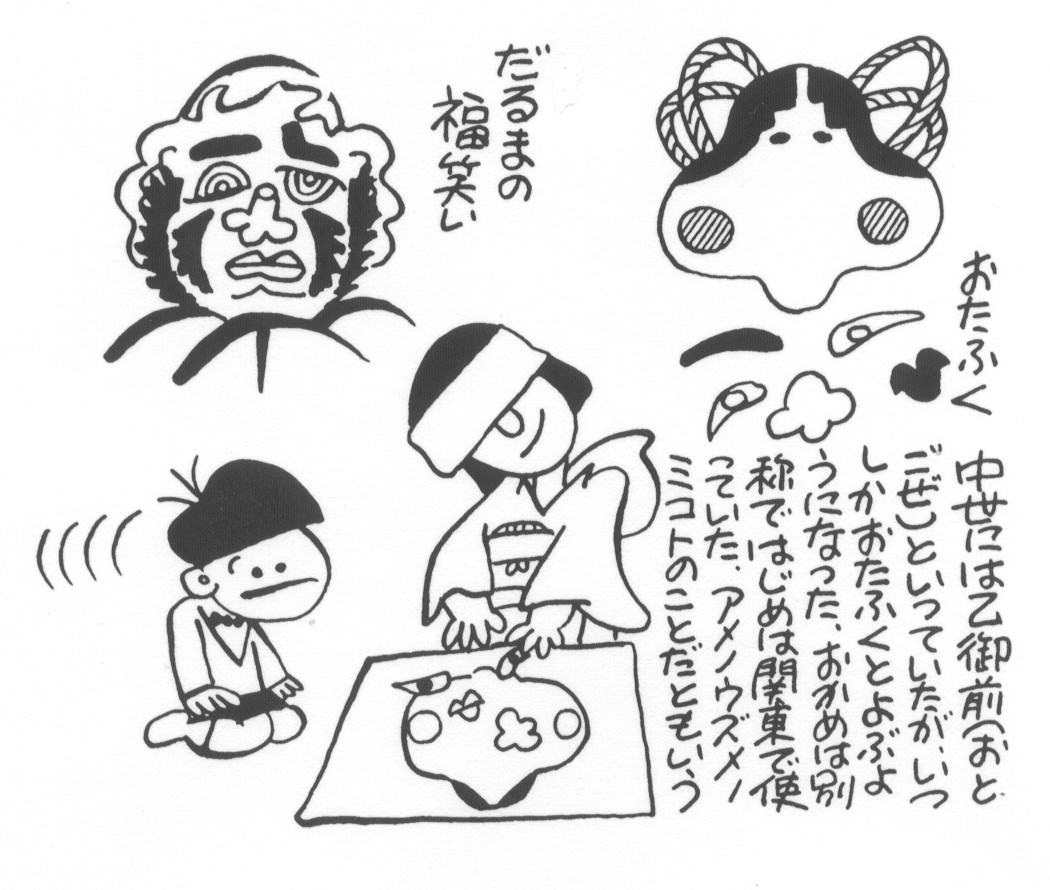 おたふく
中世には乙御前(おと
ごぜ)といっていたが、いつ
しかおたふくとよぶよ
うになった、おかめは別
称ではじめは関東で使
っていた、アメノウズメノ
ミコトのことだともいう
だるまの
福笑い